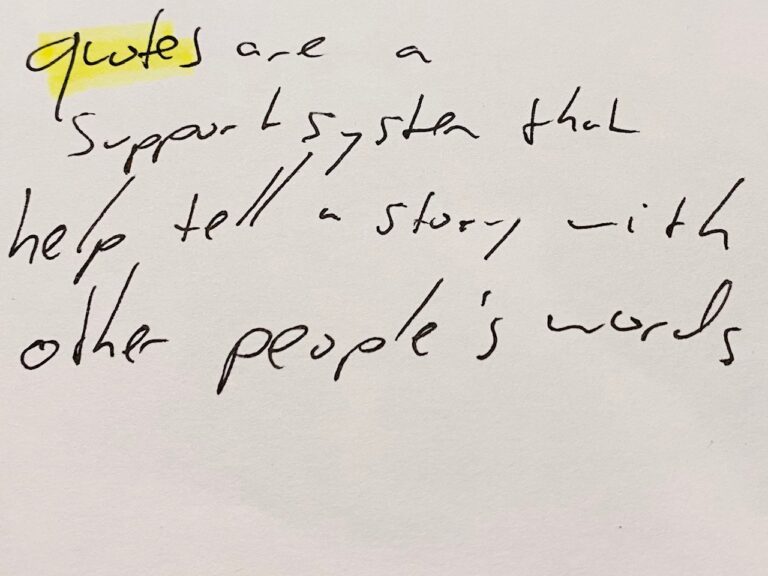 quotes are a
support system that
help tell a story with
other people's words